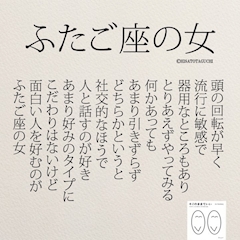 ふたご座の女
©HIDAYOTAGUCHI
頭の回転が早く
流行に敏感で
器用なところもあり
とりあえずやってみる
何かあっても
あまり引きずらず
どちらかというと
社交的なほうで
人と話すのが好き
あまり好みのタイプに
こだわりはないけど
面白い人を好むのが
ふたご座の女